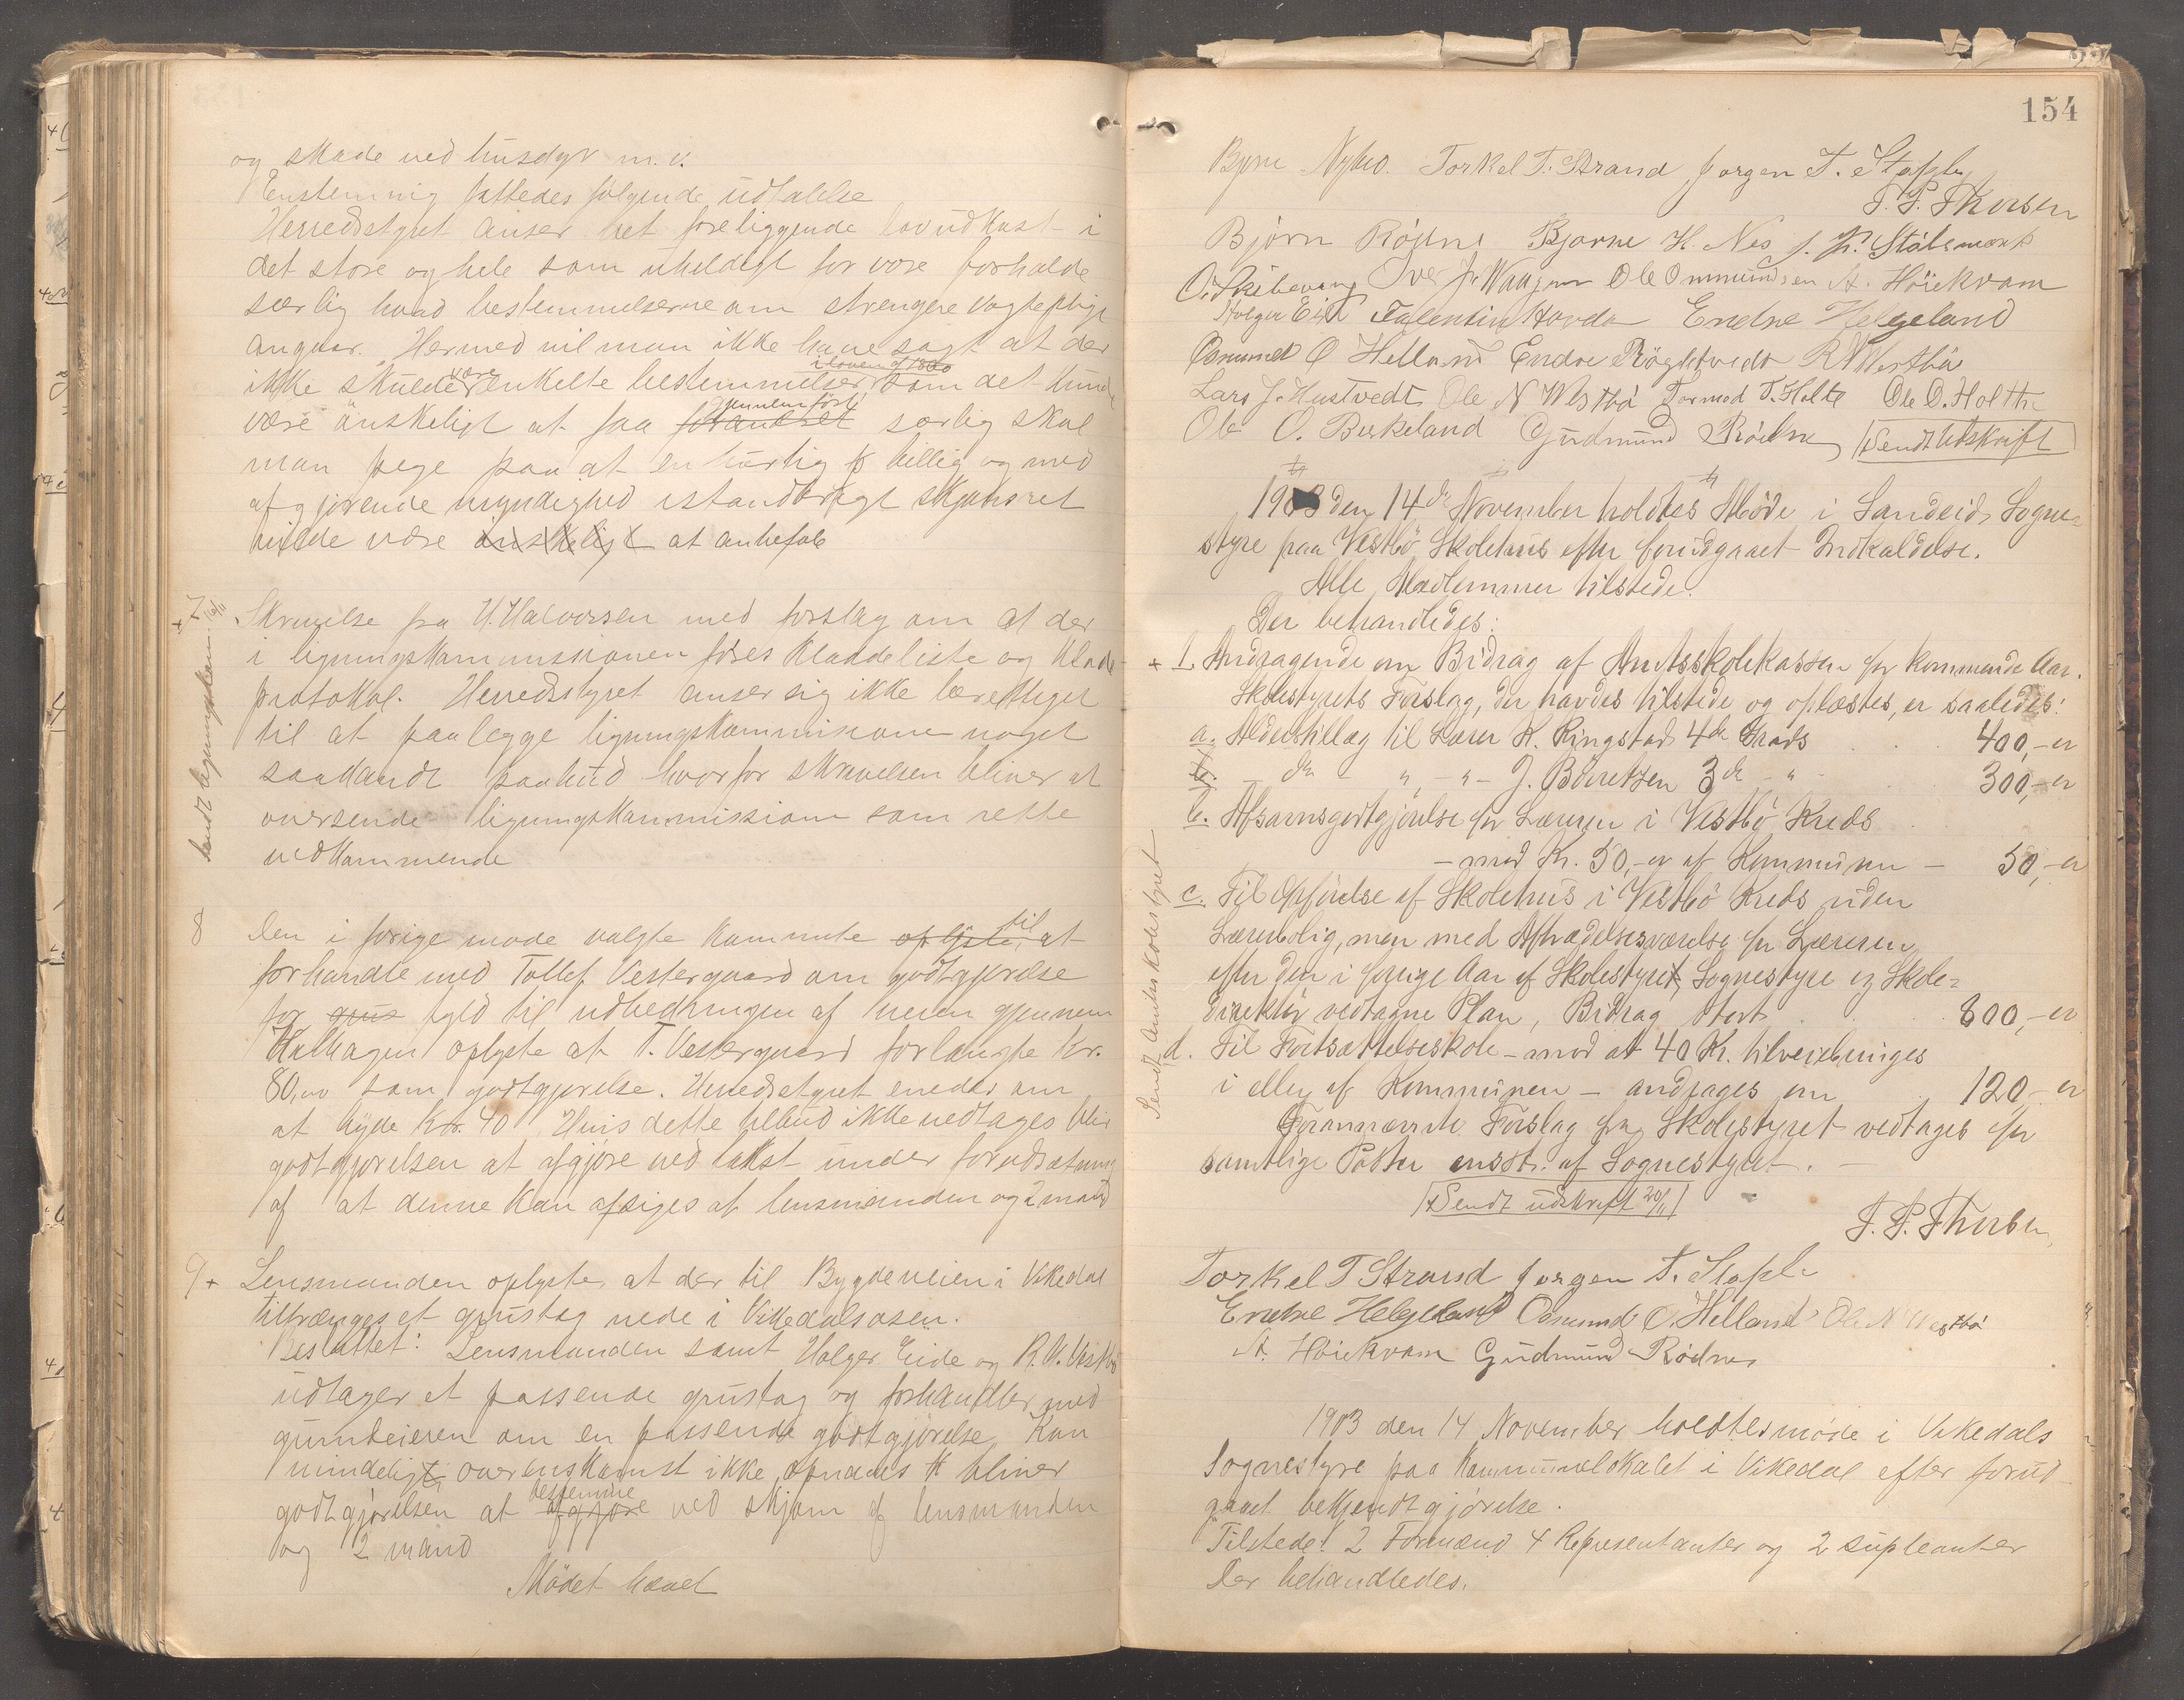 og skade ved husdyr m.v.
Enstemmig fattedes følgende udtalelse
Herredsstyret anser det foreliggende lovudkast i
det store og hele som uheldigt for vore forholde
særlig hvad bestemmelserne om strengere vogtepligt
angaar. Hermed vil man ikke have sagt at der
i loven af 1860
ikke skulde være enkelte bestemmelser som det kunde
være ønskeligt at faa forandret gjennemført særlig skal
man pege paa at en hurtig billig og med
afgjørende myndighed istandbragt skjønsret
vilde være ønskeligt at anbefale
7 Skrivelse fra H. Halvorsen med forslag om at der
i ligningskommissionen føres kladdeliste og klade-
protokol. Herredsstyret anser sig ikke berettiget
til at paalegge ligningskommissionen noget
saadandt paabud hvorfor skrivelsen bliver at
oversende ligningskommission som rette
vedkommende
sendt ligningskom.
8 Den i forige møde valgte kommite oplyste til at
forhandle med Tollef Vestergaard om godtgjørelse
for grus fyld til udbedringen af veien gjennem
oplyste at T. Vestergaard forlangte Kr.
80,00 som godtgjørelse. Herredsstyret enedes om
at byde Kr. 40. Hvis dette tilbud ikke vedtages blir
godtgjørelsen at afgjøre ved takst under forudsætning
af at denne kan afsiges af lensmanden og 2 mand
9 + Lensmanden oplyste at der til Bygdeveien i Vikedal
tiltrænges et grustag nede i Vikedalsosen.
Besluttet: Lensmanden samt Holger Eide og R. N. Vestbø
udtager et passende grustag og forhandler med
grundeieren om en passende godtgjørelse. Kan
mindelig overenskomst ikke opnaaes bliver
godtgjørelsen at afgjøre bestemme ved skjøn af lensmanden
og 2 mand
Mødet hævet
154
Torkel T. Strand Jorgen T. Stople
T. P. Thorsen
Bjørn Rødne Bjarne H. Nes
Ole Ommundsen A. Høiekvam
Holger Eide Valentin Hovda Endre Helgeland
Osmund O Helland Endre R N Westbø
Lars J. Hustvedt Ole N Westbø Tormod T. Holte Ole O. Holthe
Ole O. Birkeland Gudmund Rødne Sendt Udskrift
1903 den 14de November holdtes Møde i Sandeids Sogne-
styre paa Vestbø Skolehus efter forudgaaet Indkaldelse.
Alle Medlemmer tilstede.
Der behandledes:
+ 1. Andragende om Bidrag af Amtsskolekassen for kommende Aar.
Skolestyrets Forslag, der havdes tilstede og oplæstes, er saaledes:
a. Alderstillæg til Lærer K. Ringstad 4de Grads 400,- er
b. - do - " - " - J. Børretzen 3de - " 300,- er
b. Afsavnsgodtgjørelse for Læreren i Vestbø Kreds
- mod Kr. 50,- er af Kommunen - 50,- er
c. Til Opførelse af Skolehus i Vestbø Kreds uden
Lærerbolig, men med Aftrædelsesværelse for Læreren
efter den i forrige Aar af Skolestyret, Sognestyre og Skole-
direktør vedtagne Plan, Bidrag stort 800,- er
d. Til Fortsættelseskole - mod at 40 Kr. tilveiebringes
i eller af Kommunen - andrages om 120,- er
Forannævnte Forslag fra Skolestyret vedtages for
samtlige Poster enst. af Sognestyret. -
Sendt udskrift 20/11
Sendt Amtsskolestyret
T. P. Thorsen
Torkel T Strand Jorgen T. Stople
Endre Helgeland Osmund O. Helland Ole N Westbø
A. Høiekvam Gudmund Rødne
1903 den 14 November holdtes møde i Vikedals
Sognestyre paa Kommunelokalet i Vikedal efter forud-
gaaet bekjendtgjørelse.
Tilstede: 2 Formænd 4 Representanter og 2 supleanter
Der behandledes.